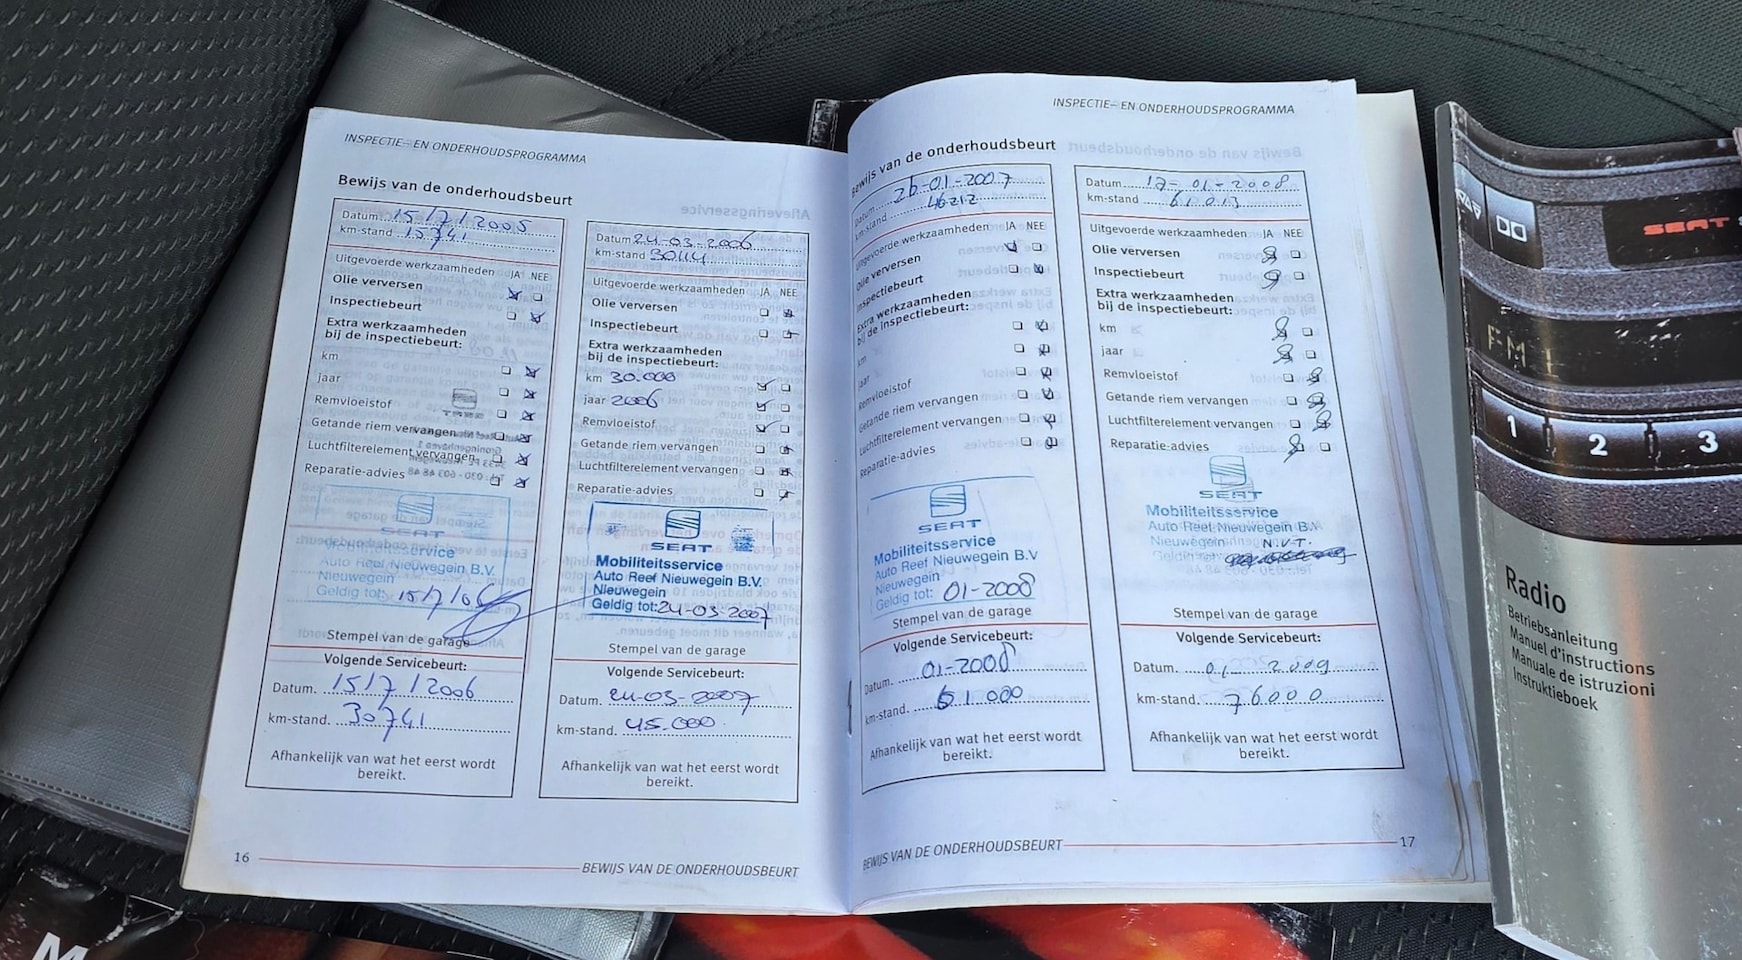 INSPECTIE- EN ONDERHOUDSPROGRAMMA
Bewijs van de onderhoudsbeurt
Datum 15/7/2005
km-stand 15741
Uitgevoerde werkzaamheden JA NEE
Olie verversen
Inspectiebeurt
Extra werkzaamheden
bij de inspectiebeurt:
km
jaar
Remvloeistof
Getande riem vervangen
Luchtfilterelement vervangen
Reparatie-advies
SEAT
Mobiliteitsservice
Auto Reef Nieuwegein B.V.
Nieuwegein
Geldig tot: 15/7/06
Stempel van de garage
Volgende Servicebeurt:
Datum. 15/7/2006
km-stand. 30741
Afhankelijk van wat het eerst wordt
bereikt.
Datum 24-03-2006
km-stand 30114
Uitgevoerde werkzaamheden JA NEE
Olie verversen
Inspectiebeurt
Extra werkzaamheden
bij de inspectiebeurt:
km 30.000
jaar 2006
Remvloeistof
Getande riem vervangen
Luchtfilterelement vervangen
Reparatie-advies
SEAT
Mobiliteitsservice
Auto Reef Nieuwegein B.V.
Nieuwegein
Geldig tot: 24-03-2007
Stempel van de garage
Volgende Servicebeurt:
Datum. 24-03-2007
km-stand. 45.000
Afhankelijk van wat het eerst wordt
bereikt.
16
BEWIJS VAN DE ONDERHOUDSBEURT
INSPECTIE- EN ONDERHOUDSPROGRAMMA
Bewijs van de onderhoudsbeurt
Datum 26-01-2007
km-stand 46212
Uitgevoerde werkzaamheden JA NEE
Olie verversen
Inspectiebeurt
Extra werkzaamheden
bij de inspectiebeurt:
km
jaar
Remvloeistof
Getande riem vervangen
Luchtfilterelement vervangen
Reparatie-advies
SEAT
Mobiliteitsservice
Auto Reef Nieuwegein B.V
Nieuwegein
Geldig tot: 01-2008
Stempel van de garage
Volgende Servicebeurt:
Datum. 01-2008
km-stand. 61000
Afhankelijk van wat het eerst wordt
bereikt.
Datum 17-01-2008
km-stand 61013
Uitgevoerde werkzaamheden JA NEE
Olie verversen
Inspectiebeurt
Extra werkzaamheden
bij de inspectiebeurt:
km
jaar
Remvloeistof
Getande riem vervangen
Luchtfilterelement vervangen
Reparatie-advies
SEAT
Mobiliteitsservice
Auto Reef Nieuwegein B.V.
Nieuwegein N.V.T.
Geldig tot:
Stempel van de garage
Volgende Servicebeurt:
Datum. 01-2009
km-stand. 76000
Afhankelijk van wat het eerst wordt
bereikt.
BEWIJS VAN DE ONDERHOUDSBEURT
17
SEAT
FM1
1 2 3
Radio
Betriebsanleitung
Manuel d'instructions
Manuale de istruzioni
Instruktieboek
M